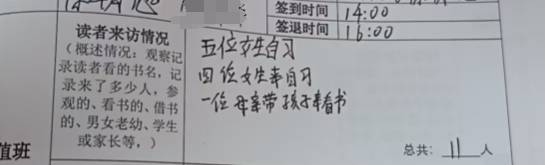 签到时间 14:00
签退时间 16:00
读者来访情况
(概述情况：观察记
录读者看的书名，记
录来了多少人，参
观的、看书的、借书
的、男女老幼、学生
或家长等，)
五位女生自习
四位女生来自习
一位母亲带孩子来看书
总共：11人
值班